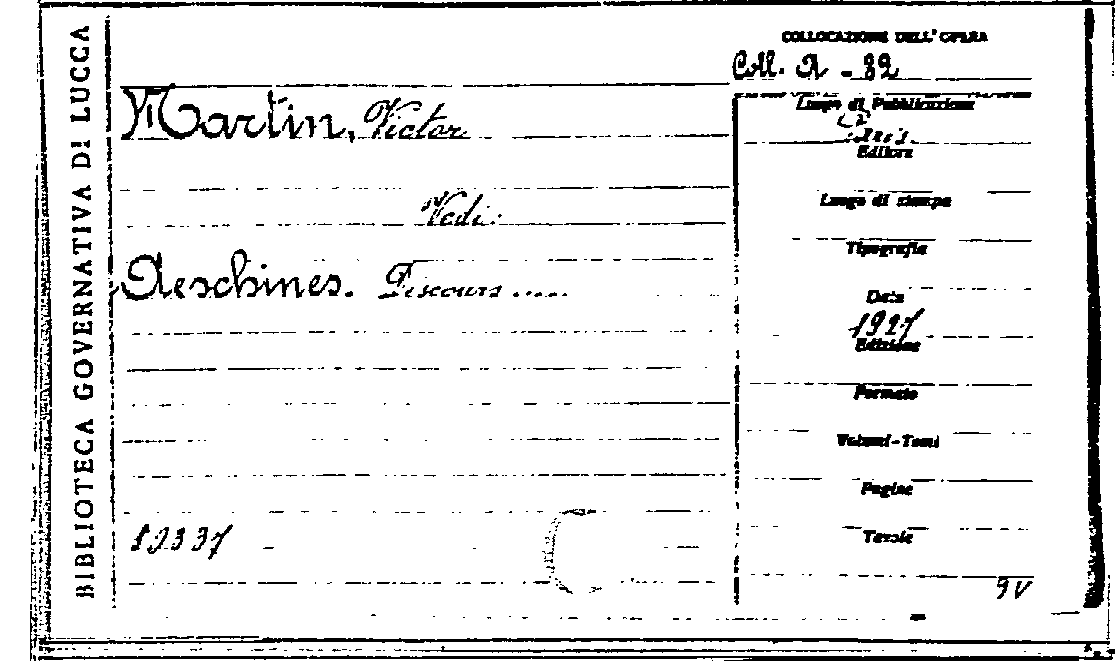 BIBLIOTECA GOVERNATIVA DI LUCCA
COLLOCAZIONE DELL'OPERA
Coll. A - 82
Martin, Victor
Vedi:
Aeschines. Discours .....
12337
Luogo di Pubblicazione
Editore
Luogo di stampa
Tipografia
Data
1927
Edizione
Formato
Volumi-Tomi
Pagine
Tavole
9V